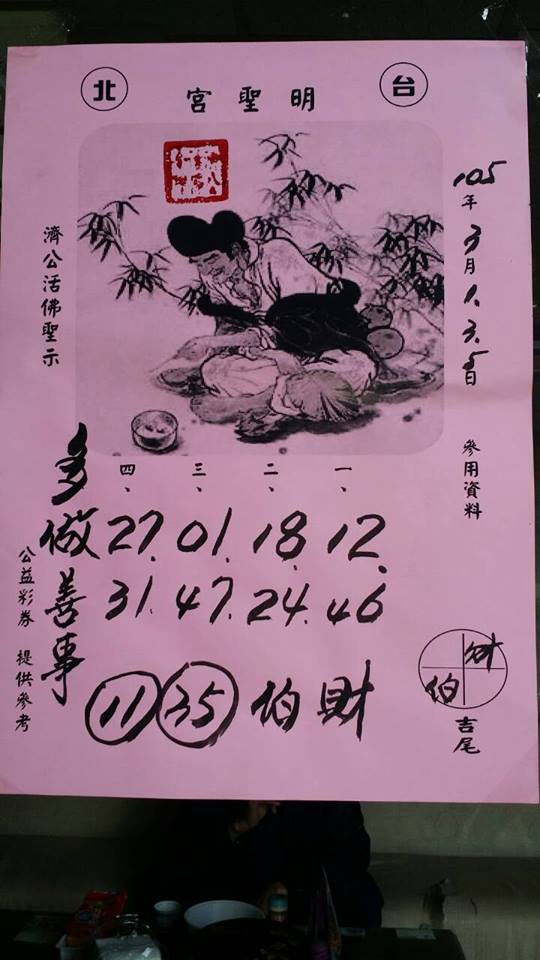 台北
明聖宮
105年3月1.3.5日
參用資料
濟公活佛聖示
一、二、三、四、
12. 18. 01. 27.
46 24. 47. 31.
多做善事
財伯 35 11
財
伯
吉尾
公益彩券 提供參考